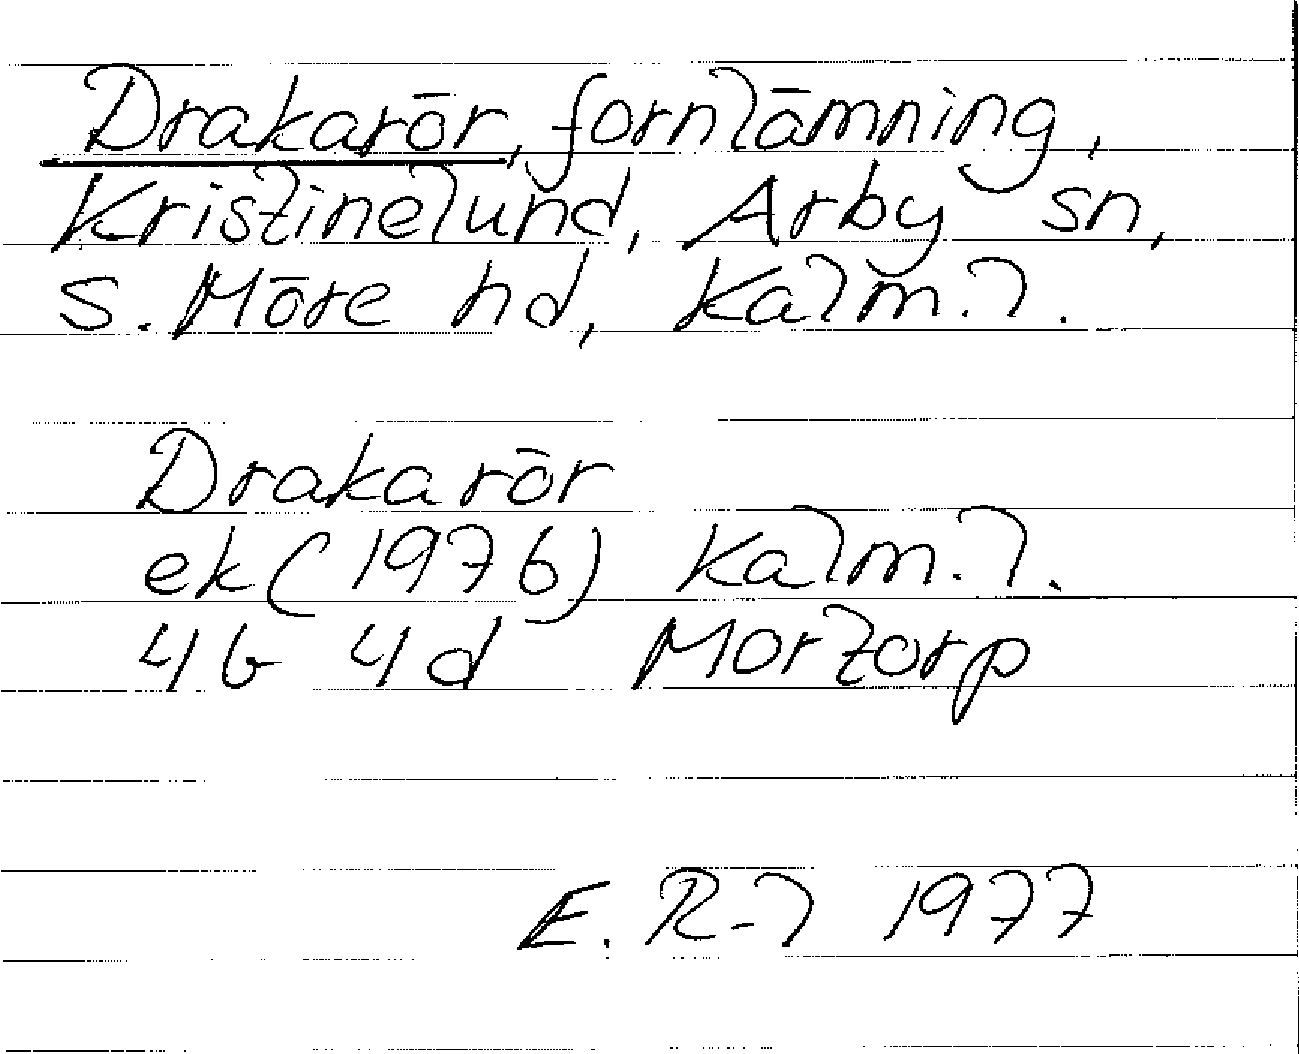 Drakarör, fornlämning,
Kristinelund, Arby sn,
S. Möre hd, Kalm. l.
Drakarör
ek (1976) Kalm. l.
4G 4d Mortorp
E. R-l 1977